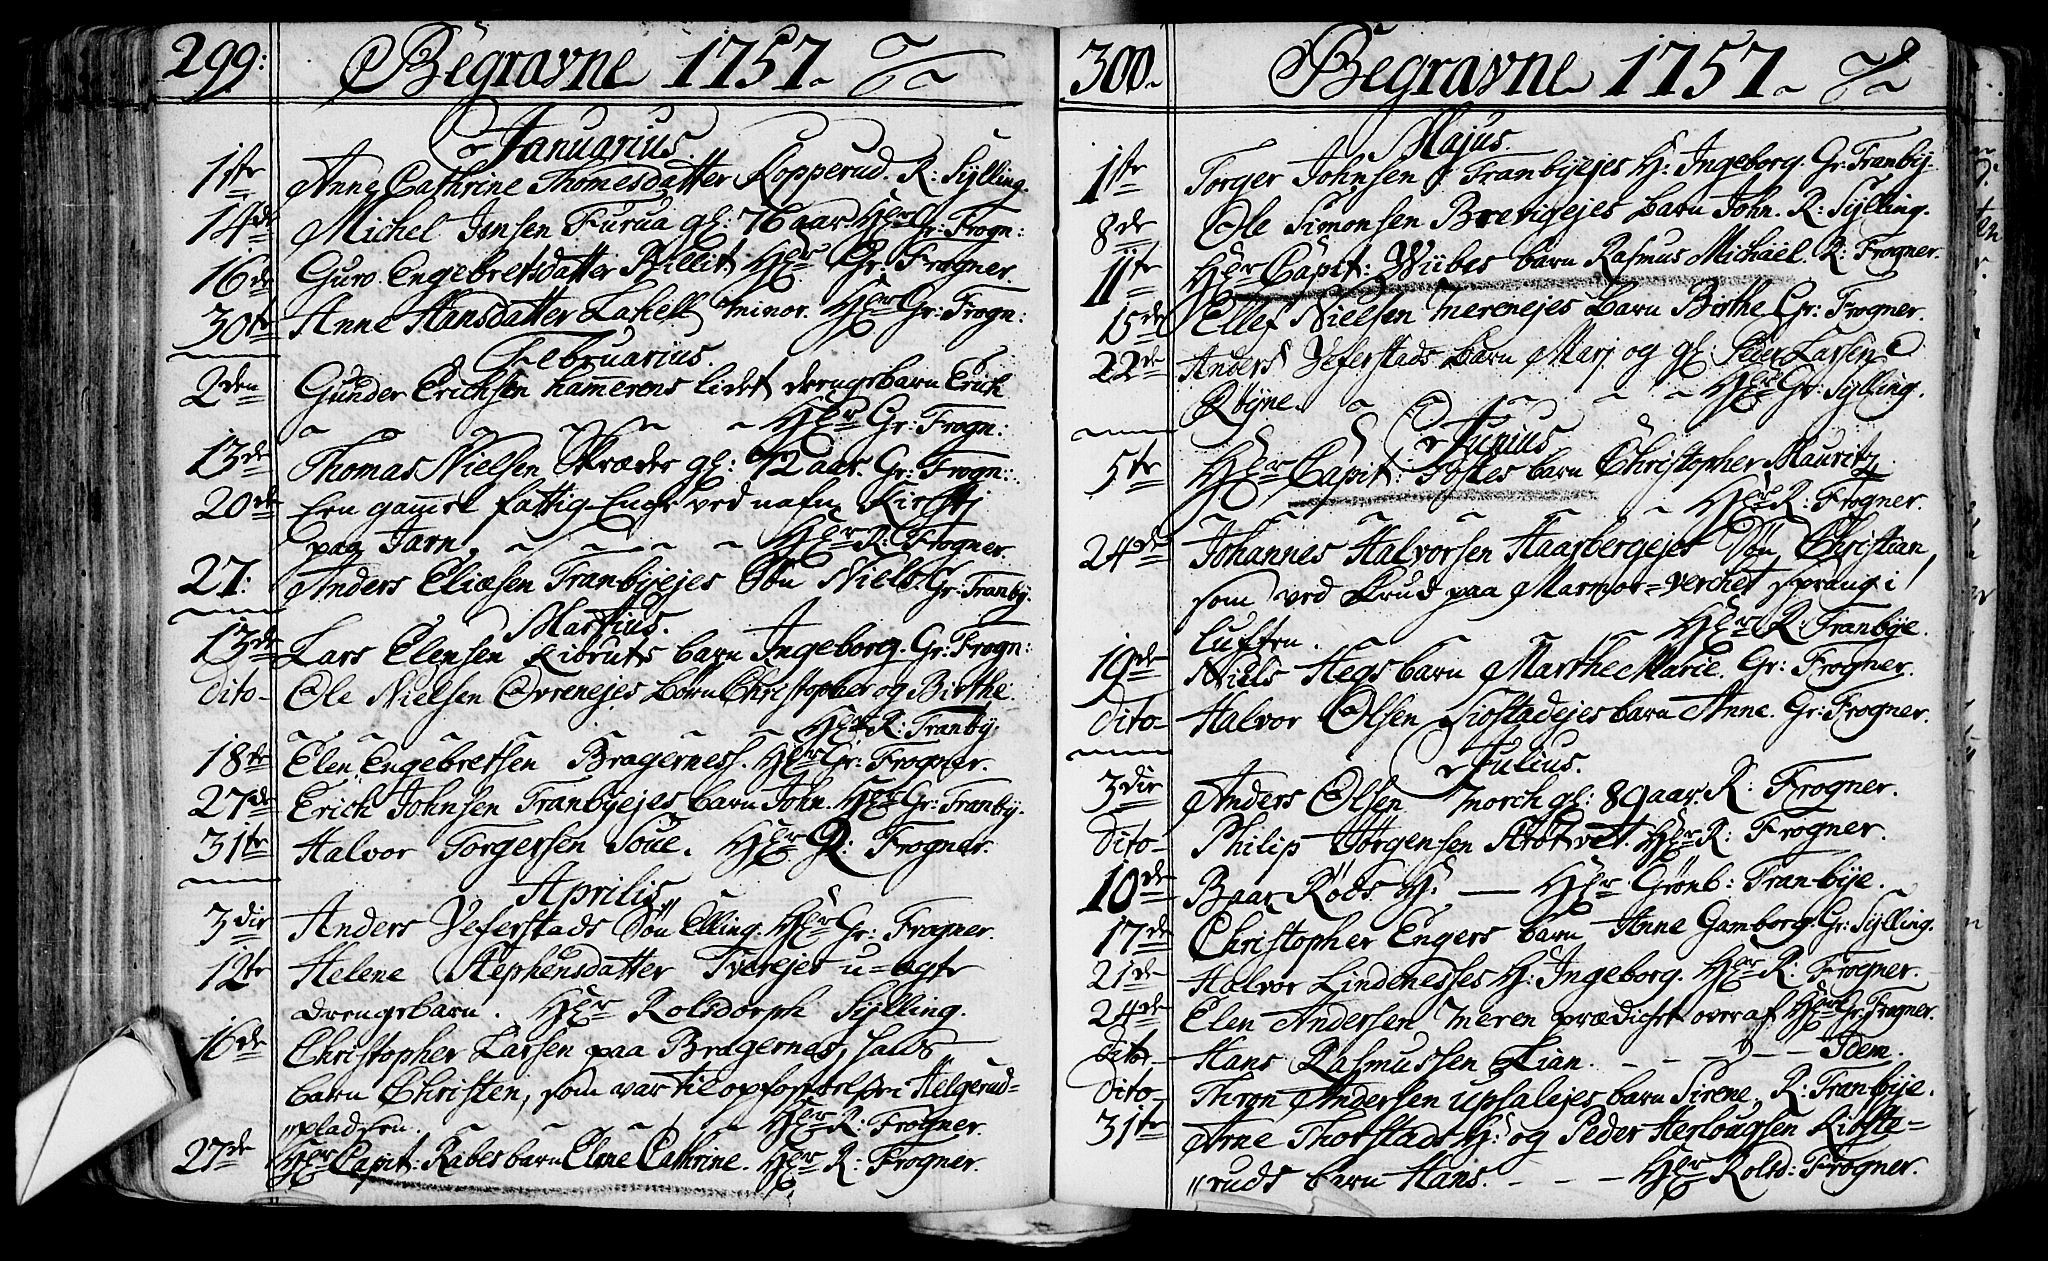 299:
Begravne 1757.
Januarius.
1ste Anne Cathrine Thomesdatter Kopperud. R: Sylling.
14de Michel Jensen Furua gl: 76 aar. Hr Gr: Frogn:
16de Guro Engebretsdatter Killit. Hr Gr: Frogner.
30te Anne Hansdatter Lahell minor. Hr Gr: Frogn:
Februarius.
2den Gunder Erichsen hamerens lidet drengebarn Erich
Hr Gr: Frogn:
13de Thomas Nielsen Skræder gl: 72 aar. Gr: Frogn:
20de Een gamel fattig Enche ved nafn Kiersti
paa Jarn. Hr R: Frogner.
27: Anders Eliæsen Tranbyejes Søn Niels. Gr: Tranby.
Martius.
13de Lars Elensen Libruts barn Ingeborg. Gr: Frogn:
dito- Ole Nielsen Ovrenejes Børn Christopher og Birthe.
Hr R: Tranby.
18de Elen Engebretsen Bragerness. Hr Gr: Frogner.
27de Erich Johnsen Tranbyejes barn John. Hr Gr: Tranby.
31te Halvor Torgersen Soue. Hr R: Frogner.
Aprilis
3die Anders Veferstads Søn Elling. Hr Gr: Frogner.
12te Helene Stephensdatter Tverejes u-ægte
drengebarn. Hr Rolsdorph Sylling.
16de Christopher Larsen paa Bragernes, hans
barn Christen, som var til opfostrelse i Helgerud-
pladsen. Hr R: Frogner.
27de Hr Capit: Rabes barn Elene Cathrine. Hr R: Frogner.
300.
Begravne 1757.
Majus.
1ste Torger Johnsen Tranbyejes H: Ingeborg. Gr: Tranby.
8de Ole Simonsen Brevigejes barn John. R: Sylling.
11te Hr Capit: Wiibes barn Rasmus Michaël. R: Frogner.
15de Ellef Nielsen Merenejes barn Birthe Gr: Frogner.
22de Anders Veferstads barn Marj og gl: Peder Larsen
Røyne. Hr Gr: Sylling.
Junius
5te Hr Capit: Tostes barn Christopher Mauritz
Hr R: Frogner.
24de Johannes Halvorsen Haasbergejes Søn Christian,
som ved Krud paa Marmor-verchet sprang i
luften. Hr R: Tranbye.
19de Niels Hegs barn Marthe Marie. Gr: Frogner.
dito- Halvor Olsen Siøstadejes barn Anne. Gr: Frogner.
Julius.
3die Anders Olsen Morch gl: 89 aar. R: Frogner.
dito- Philip Jørgensen Støtvet. Hr R: Frogner.
10de Baar Røds H: — Hr Grønb: Tranbye.
17de Christopher Engers barn Anne Gamborg. Gr: Sylling.
21de Halvor Lindenesses H: Ingeborg. Hr R: Frogner.
24de Elen Andersen Meren prædichet over af Hr Gr: Frogner.
dito- Hans Rasmussen Lian. Idem.
dito- Thron Andersen Upsalejes barn Sirene. R: Tranbye.
31te Arne Thorstads H: og Peder Herlougsen Kioste-
ruds barn Hans. Hr Rolsd: Frogner.